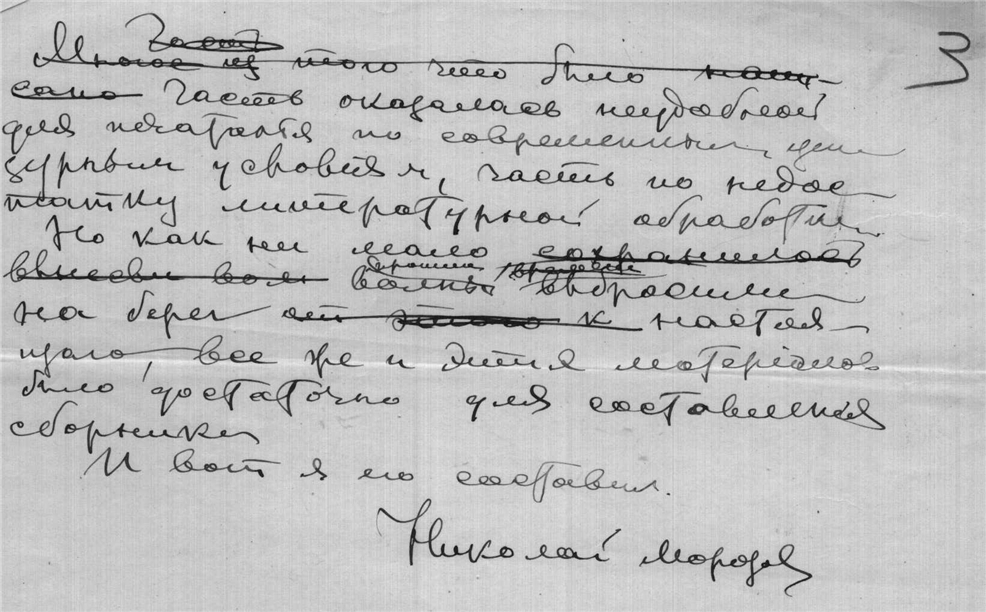 Часть
Многое из того что было напи-
сано Часть оказалась неудобной
для печатанiя по современным цен
зурным условiям, часть по недос
татку литературной обработки.
Но как ни мало сохранилось
вынесен волн волны времени выбросили
на берег от этого к настоя-
щаго, все же и этих матерiалов
было достаточно для составленiя
сборника
И вот я его составил.
Николай Морозов